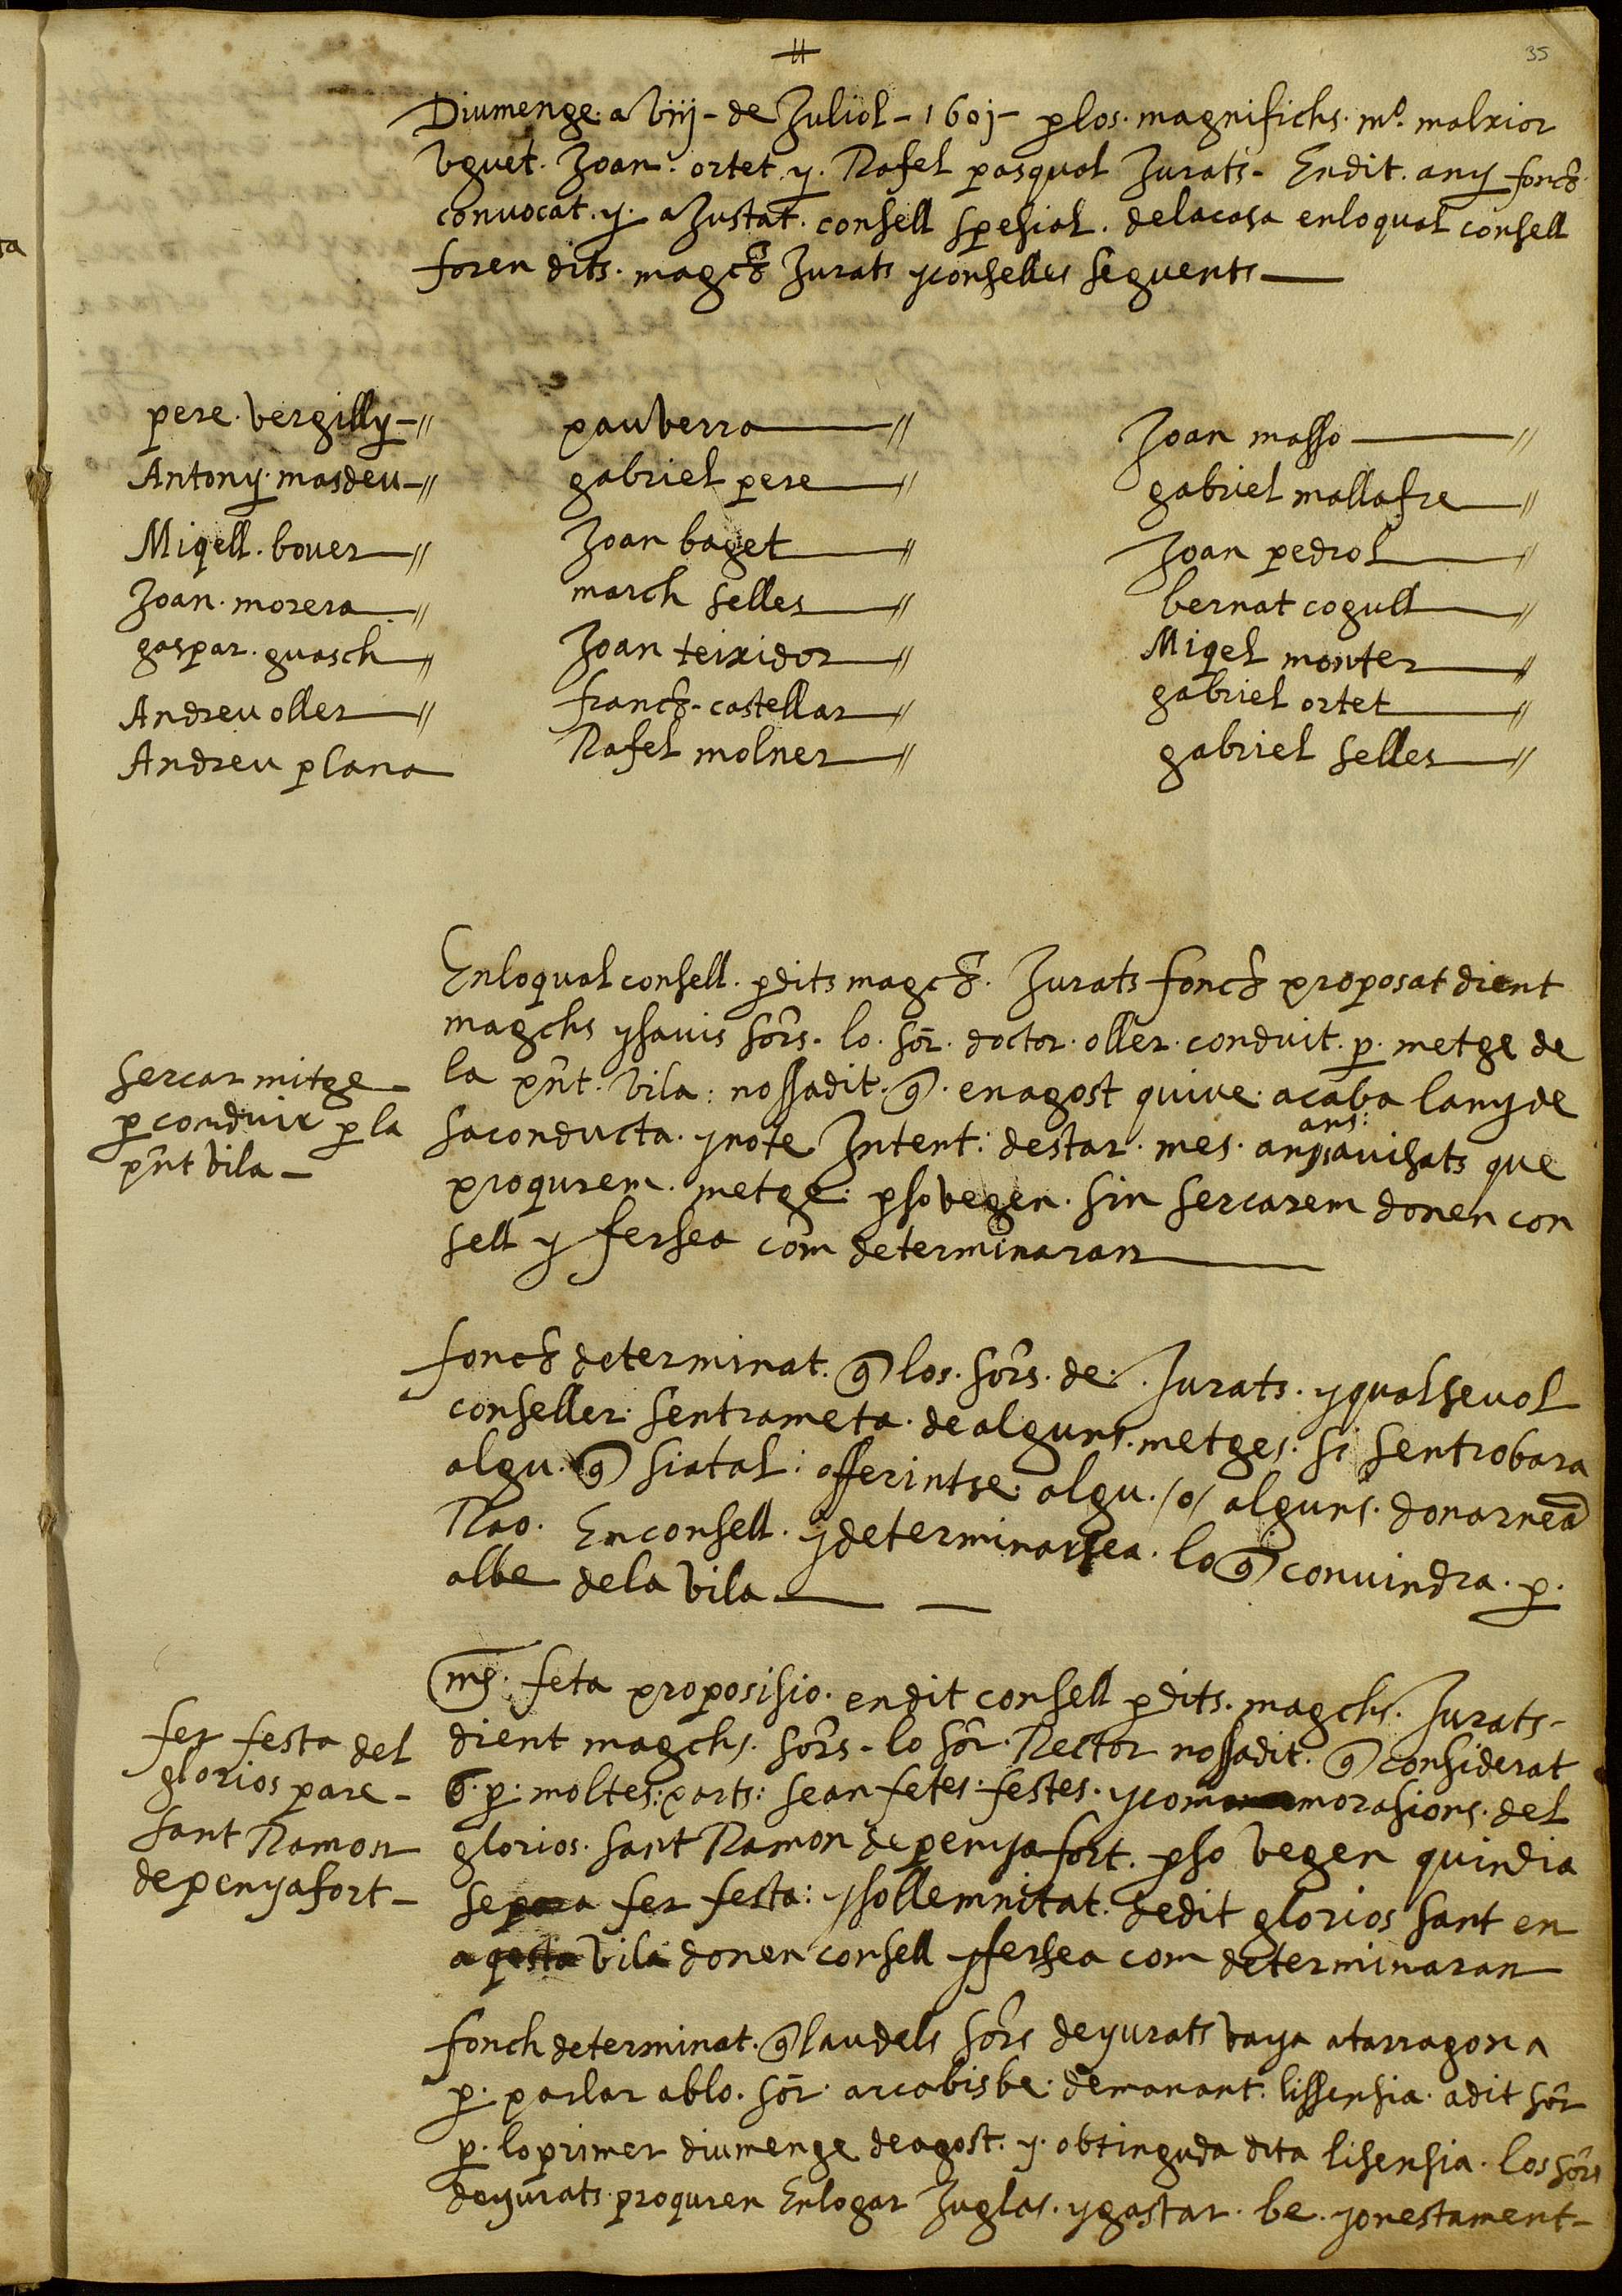 35
Diumenge a viij - de Juliol - 1601 - p los magnifichs mº malxior
vguet Joan ortet y Rafel pasqual Jurats - En dit any fonch
convocat y aJustat consell spesial de la casa en lo qual consell
foren dits magchs Jurats y conselles seguents
pere vergilly
Antony masdeu
Miqell bover
Joan morera
gaspar guasch
Andreu oller
Andreu plana
pau verra
gabriel pere
Joan baget
march selles
Joan teixidor
franch castellar
Rafel molner
Joan masso
gabriel mallafre
Joan pedrol
bernat cogull
Miqel monter
gabriel ortet
gabriel selles
En lo qual consell p dits magchs Jurats fonch proposat dient
magchs y savis sors lo sor doctor oller conduit p metge de
sercar mitge
p conduir p la
pnt vila
la pnt vila nos sa dit q en agost qui ve acaba lany de
sa conducta y no te Intent destar mes ans avisats que
proqurem metge p so vegen sin sercarem donen con
sell y fersea com determinaran
fonch determinat q los sors de Jurats y qualsevol
conseller sentrameta de alguns metges si sen trobara
algu q sia tal offerintse algu /o/ alguns donarnea
Rao En consell y determinarsea lo q convindra p
al be de la vila
ms feta proposisio en dit consell p dits magchs Jurats
fer festa del
glorios pare
sant Ramon
de penyafort
dient magchs sors lo sor Rector nos sa dit q considerat
q p moltes parts sean fetes festes y commorasions del
glorios sant Ramon de penyafort p so vegen quin dia
se pora fer festa y sollemnitat de dit glorios sant en
aqesta vila donen consell y fersea com determinaran
fonch determinat q la u dels sors de yurats vaya a tarragona
p parlar ab lo sor arcabisbe demanant lissensia a dit sor
p lo primer diumenge de agost y obtinguda dita lisensia los sors
de yurats proquren En logar Juglas y gastar be y onestament